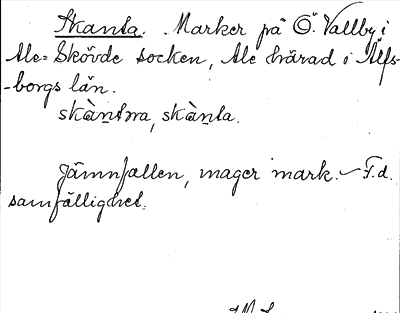 Skanta. Marker på Ö. Vallby i
Ale-Skövde socken, Ale härad i Älfs-
-borgs län.
skàntṇa, skànta.
Jämnfallen, mager mark. - F.d.
samfällighet.